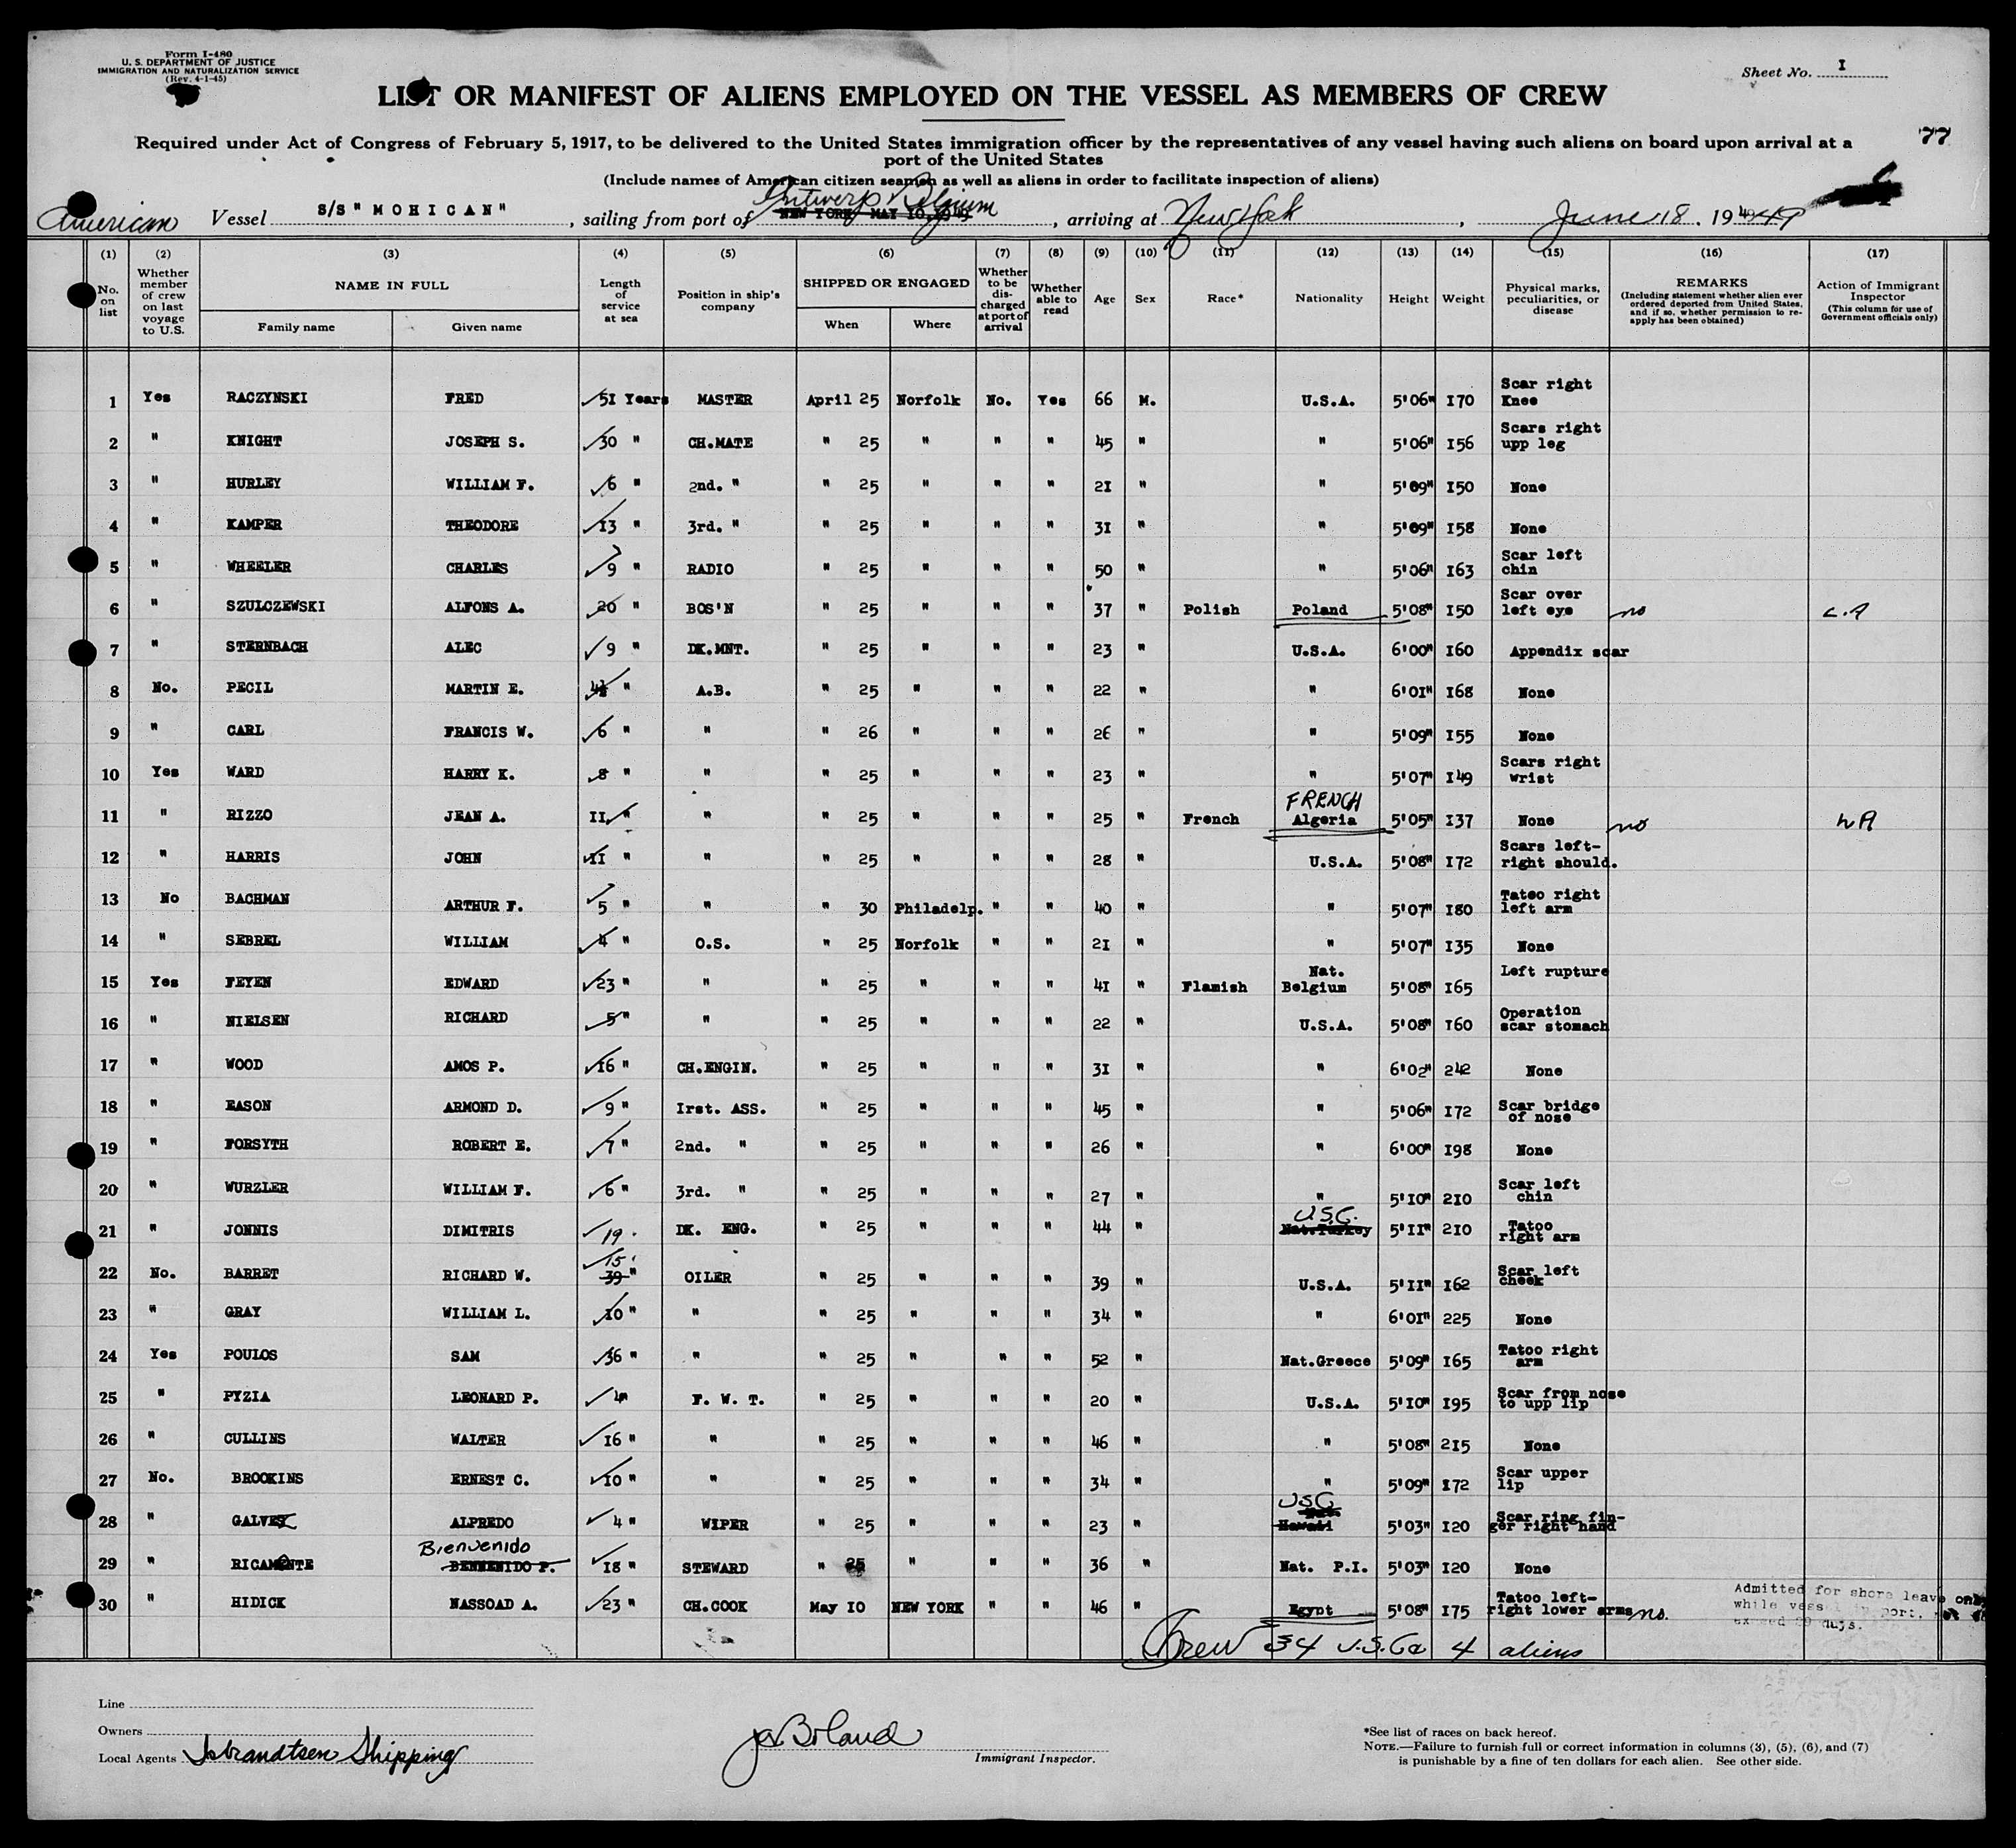 Form I-480
U. S. DEPARTMENT OF JUSTICE
IMMIGRATION AND NATURALIZATION SERVICE
(Rev. 4-1-45)
Sheet No. I
LIST OR MANIFEST OF ALIENS EMPLOYED ON THE VESSEL AS MEMBERS OF CREW
77
Required under Act of Congress of February 5, 1917, to be delivered to the United States immigration officer by the representatives of any vessel having such aliens on board upon arrival at a
port of the United States
(Include names of American citizen seamen as well as aliens in order to facilitate inspection of aliens)
Antwerp Belgium
American Vessel S/S "MOHICAN", sailing from port of NEW YORK MAY 10, 1949, arriving at New York, June 18, 1949
(1) (2) (3) (4) (5) (6) (7) (8) (9) (10) (11) (12) (13) (14) (15) (16) (17)
No. on list
Whether member of crew on last voyage to U.S.
NAME IN FULL
Family name Given name
Length of service at sea
Position in ship's company
SHIPPED OR ENGAGED
When Where
Whether to be discharged at port of arrival
Whether able to read
Age
Sex
Race*
Nationality
Height
Weight
Physical marks, peculiarities, or disease
REMARKS
(Including statement whether alien ever ordered deported from United States, and if so, whether permission to reapply has been obtained)
Action of Immigrant Inspector
(This column for use of Government officials only)
1 Yes RACZYNSKI FRED 51 Years MASTER April 25 Norfolk No. Yes 66 M. U.S.A. 5'06" 170 Scar right Knee
2 " KNIGHT JOSEPH S. 30 " CH.MATE " 25 " " " 45 " " 5'06" 156 Scars right upp leg
3 " HURLEY WILLIAM F. 6 " 2nd. " " 25 " " " 21 " " 5'09" 150 None
4 " KAMPER THEODORE 13 " 3rd. " " 25 " " " 31 " " 5'09" 158 None
5 " WHEELER CHARLES 9 " RADIO " 25 " " " 50 " " 5'06" 163 Scar left chin
6 " SZULCZEWSKI ALFONS A. 20 " BOS'N " 25 " " " 37 " Polish Poland 5'08" 150 Scar over left eye no
7 " STERNBACH ALEC 9 " DK.MNT. " 25 " " " 23 " U.S.A. 6'00" 160 Appendix scar
8 No. PECIL MARTIN E. " A.B. " 25 " " " 22 " " 6'01" 168 None
9 " CARL FRANCIS W. 6 " " " 26 " " " 26 " " 5'09" 155 None
10 Yes WARD HARRY K. 8 " " " 25 " " " 23 " " 5'07" 149 Scars right wrist
11 " RIZZO JEAN A. 11 " " " 25 " " " 25 " French FRENCH Algeria 5'05" 137 None no
12 " HARRIS JOHN 11 " " " 25 " " " 28 " U.S.A. 5'08" 172 Scars left- right should.
13 No BACHMAN ARTHUR F. 5 " " " 30 Philadelp. " " 40 " " 5'07" 180 Tatoo right left arm
14 " SEBREL WILLIAM 4 " O.S. " 25 Norfolk " " 21 " " 5'07" 135 None
15 Yes FEYEN EDWARD 23 " " " 25 " " " 41 " Flamish Nat. Belgium 5'08" 165 Left rupture
16 " NIELSEN RICHARD 5 " " " 25 " " " 22 " U.S.A. 5'08" 160 Operation scar stomach
17 " WOOD AMOS P. 16 " CH.ENGIN. " 25 " " " 31 " " 6'02" 242 None
18 " EASON ARMOND D. 9 " Irst. ASS. " 25 " " " 45 " " 5'06" 172 Scar bridge of nose
19 " FORSYTH ROBERT E. 7 " 2nd. " " 25 " " " 26 " " 6'00" 198 None
20 " WURZLER WILLIAM F. 6 " 3rd. " " 25 " " " 27 " " 5'10" 210 Scar left chin
21 " JONNIS DIMITRIS 19 DK. ENG. " 25 " " " 44 " U.S.C. Nat.Turkey 5'11" 210 Tatoo right arm
22 No. BARRET RICHARD W. 15 39 " OILER " 25 " " " 39 " U.S.A. 5'11" 162 Scar left cheek
23 " GRAY WILLIAM L. 10 " " " 25 " " " 34 " " 6'01" 225 None
24 Yes POULOS SAM 36 " " " 25 " " " 52 " Nat.Greece 5'09" 165 Tatoo right arm
25 " PYZIA LEONARD P. 4 " F. W. T. " 25 " " " 20 " U.S.A. 5'10" 195 Scar from nose to upp lip
26 " CULLINS WALTER 16 " " " 25 " " " 46 " " 5'08" 215 None
27 No. BROOKINS ERNEST C. 10 " " " 25 " " " 34 " " 5'09" 172 Scar upper lip
28 " GALVEZ ALPREDO 4 " WIPER " 25 " " " 23 " USC Nat. Hawaii 5'03" 120 Scar ring fin- ger right hand
29 " RICAMONTE Bienvenido BENNENIDO P. 18 " STEWARD " 25 " " " 36 " Nat. P.I. 5'03" 120 None
30 " HIDICK NASSOAD A. 23 " CH.COOK May 10 NEW YORK " " 46 " Egypt 5'08" 175 Tatoo left- right lower arms no.
Admitted for shore leave only
while vessel in port, not
exceed 29 days.
Crew 34 U.S.Cs 4 aliens
Line
Owners
Local Agents Isbrandtsen Shipping
Boland
Immigrant Inspector.
*See list of races on back hereof.
NOTE.—Failure to furnish full or correct information in columns (3), (5), (6), and (7)
is punishable by a fine of ten dollars for each alien. See other side.